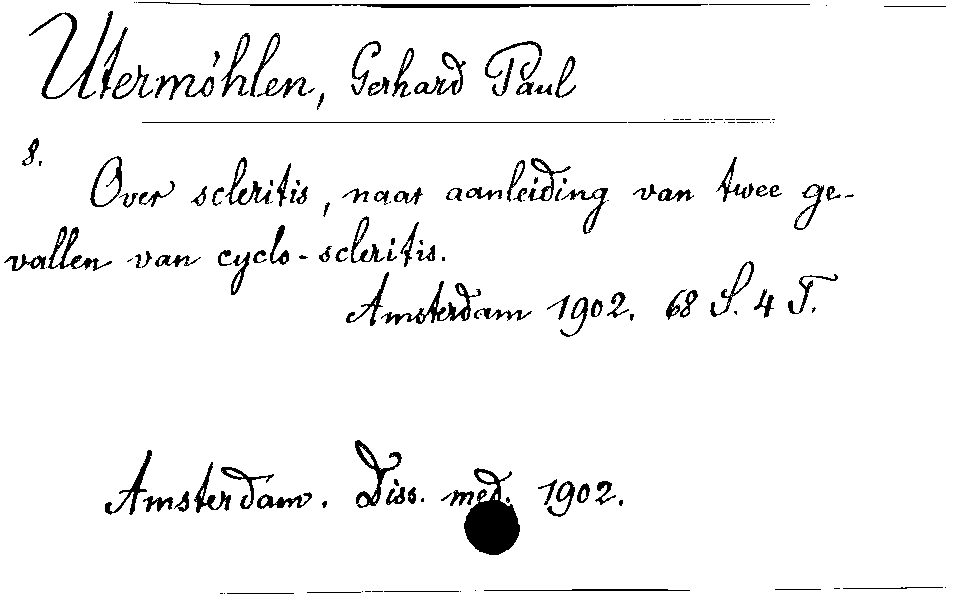 Utermöhlen, Gerhard Paul
8.
Over scleritis, naar aanleiding van twee ge-
vallen van cyclo-scleritis.
Amsterdam 1902. 68 S. 4 T.
Amsterdam. Diss. med. 1902.